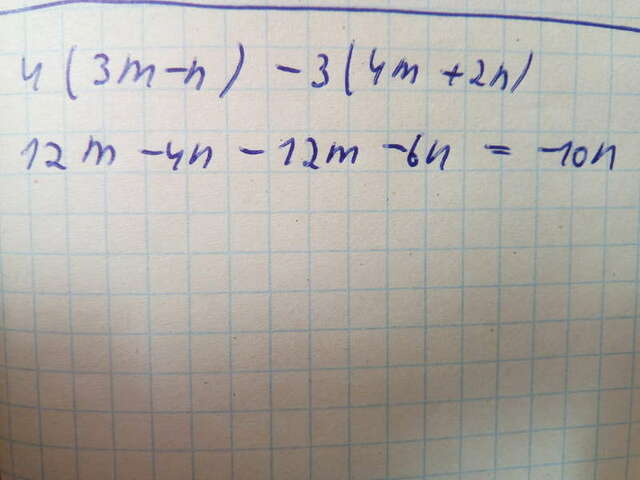 4(3m-n) -3(4m+2n)
12m -4n -12m -6n = -10n